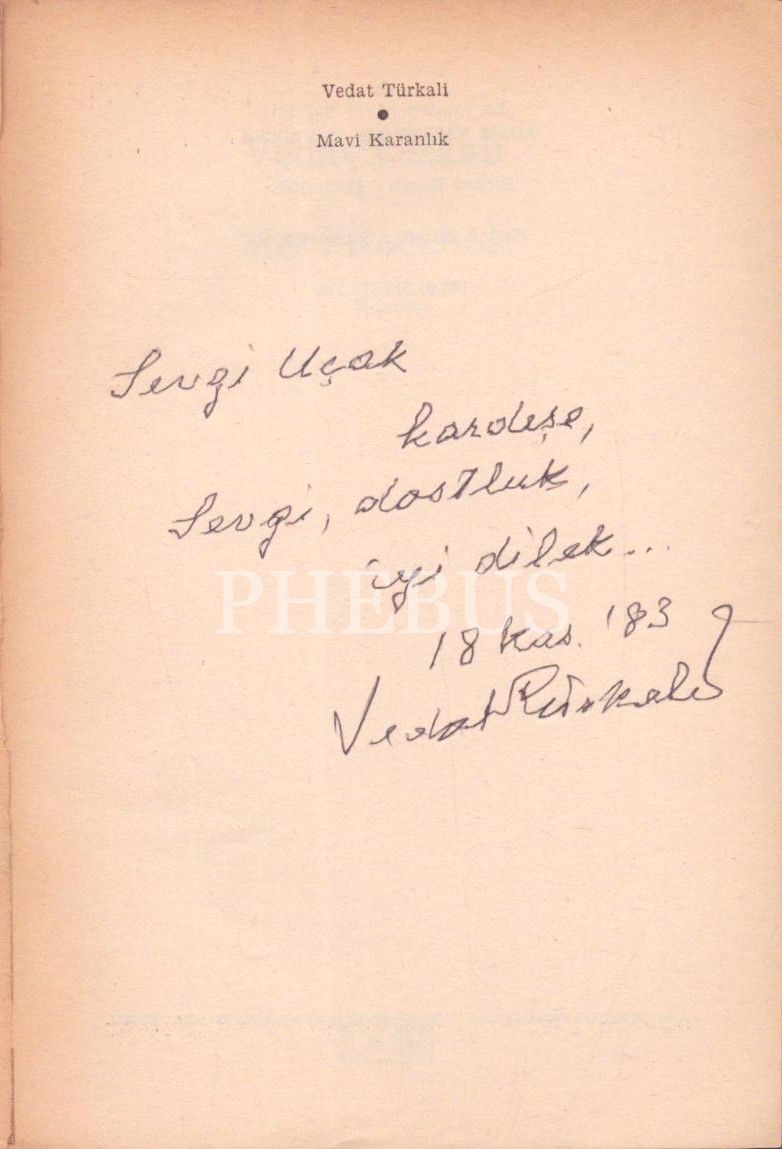 Vedat Türkali
●
Mavi Karanlık
Sevgi Uçak
kardeşe,
Sevgi, dostluk,
iyi dilek...
PHEBUS
18 Kas. '83
Vedat Türkali